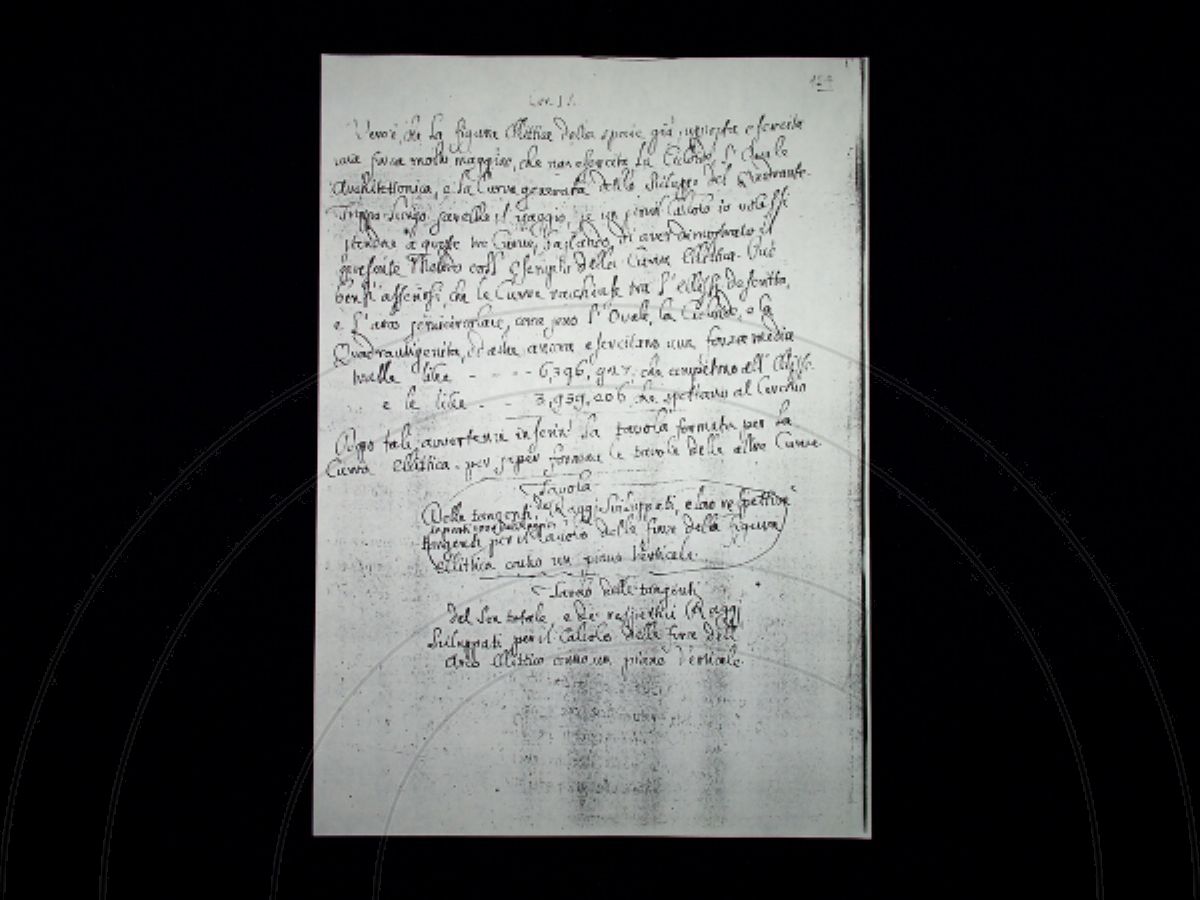 Vero è, che la figura Ellittica della specie già esposta esercita
una forza molto maggiore, che non esercita la Cicloide, l'Ovale
Architettonica, e la Curva generata dello Sviluppo del Quadrante.
Troppo lungo sarebbe il saggio, se un simil Calcolo io volessi
stendere a queste tre Curve, bastando, di aver dimostrato il
presente Metodo coll'Esempio della Curva Ellittica. Può
bensì asserirsi, che le Curve racchiuse tra l'Ellisse descritta,
e l'arco semicircolare, come sono l'Ovale, la Cicloide, e la
Quadrantigenita, ancora esercitano una forza media
tralle libre - - - - 6,396, 917, che competono all'Ellisse.
e le libre - - 3,959,206, che spettano al Cerchio
Dopo tali avvertenze inserirò la tavola formata per la
Curva Ellittica, per saper formare le tavole delle altre Curve
Tavola
Delle tangenti, de' Raggi Sviluppati, e loro respettive
tangenti per il Calcolo delle forze della figura
ellittica contro un piano Verticale
Tavola delle tangenti
del Sen totale, e de' respettivi Raggi
Sviluppati per il Calcolo delle forze dell'
Arco ellittico contro un piano Verticale.